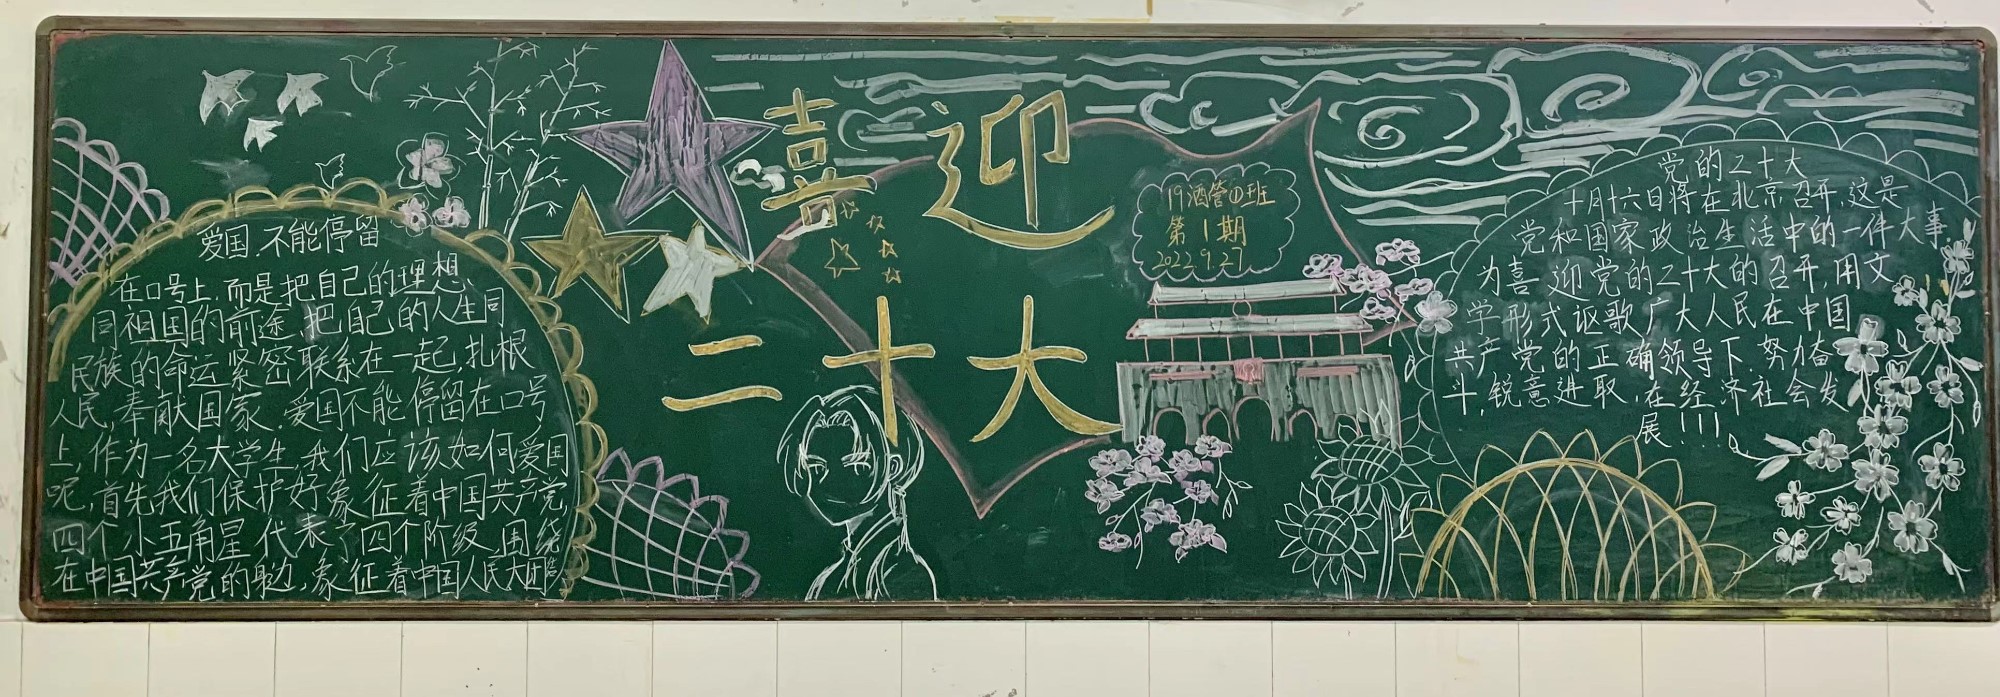 爱国,不能停留
在口号上,而是把自己的理想
同祖国的前途,把自己的人生同
民族的命运紧密联系在一起,扎根
人民,奉献国家.爱国不能停留在口号
上,作为一名大学生,我们应该如何爱国
呢,首先我们保护好象征着中国共产党,
四个小五角星代表了四个阶级,围绕
在中国共产党的周边,象征着中国人民大团结
喜迎
二十大
19酒管①班
第1期
2022.9.27
党的二十大
十月十六日将在北京召开,这是
党和国家政治生活中的一件大事
为喜迎党的二十大的召开,用文
学形式讴歌广大人民在中国
共产党的正确领导下努力奋
斗,锐意进取,在经济社会发
展!!!